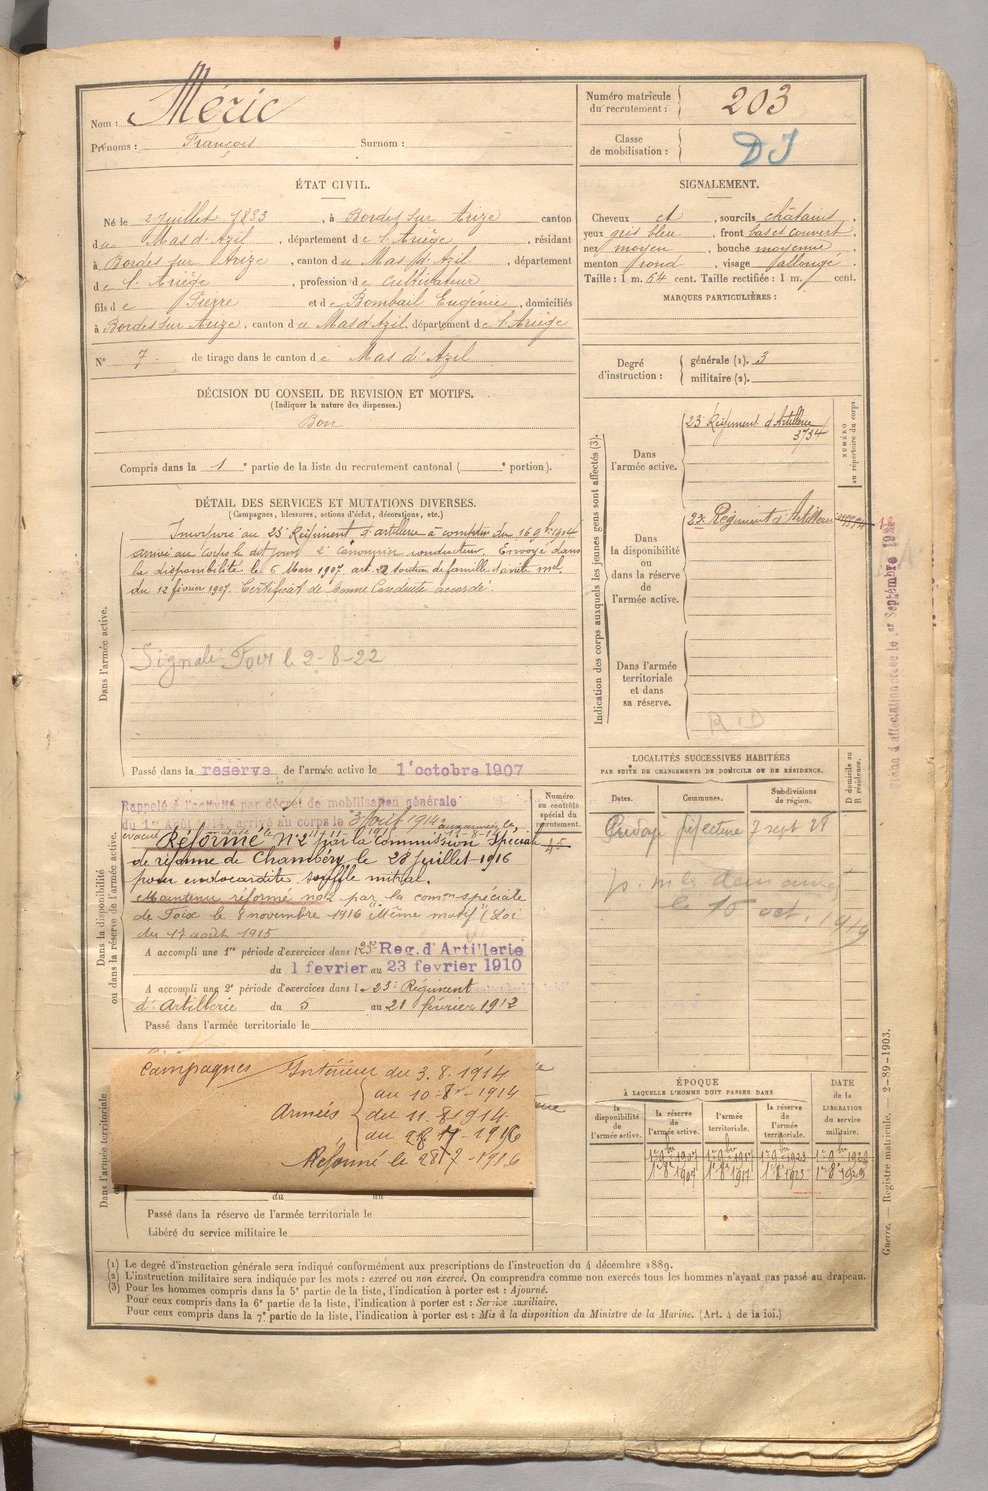 Nom : Méric
Prénoms : François Surnom :
Numéro matricule du recrutement : 203
Classe de mobilisation : DI
ÉTAT CIVIL.
Né le 2 Juillet 1883, à Bordes sur Arize canton
du Mas d'Azil, département de l'Ariège, résidant
à Bordes sur Arize, canton du Mas d'Azil, département
de l'Ariège, profession de Cultivateur
fils de Pierre et de Bombail Eugénie, domiciliés
à Bordes sur Arize, canton du Mas d'Azil, département de l'Ariège
N° 7 de tirage dans le canton de Mas d'Azil
SIGNALEMENT.
Cheveux et, sourcils châtains,
yeux gris bleu, front bas et couvert,
nez moyen, bouche moyenne,
menton rond, visage allongé.
Taille : 1 m. 54 cent. Taille rectifiée : 1 m. cent.
MARQUES PARTICULIÈRES :
Degré d'instruction : générale (1). 3
militaire (2).
DÉCISION DU CONSEIL DE REVISION ET MOTIFS.
(Indiquer la nature des dispenses.)
Bon
Compris dans la 1e partie de la liste du recrutement cantonal ( e portion).
DÉTAIL DES SERVICES ET MUTATIONS DIVERSES.
(Campagnes, blessures, actions d'éclat, décorations, etc.)
Dans l'armée active.
Incorporé au 23e Régiment d'artillerie à compter du 16 9bre 1904
arrivé au corps le dit jour 2e Canonnier conducteur. Envoyé dans
la disponibilité le 6 Mars 1907. art. 22 soutien de famille d'avite mel.
du 12 février 1907. Certificat de bonne Conduite accordé.
Signalé Foix le 2-8-22
Passé dans la réserve de l'armée active le 1 octobre 1907
Indication des corps auxquels les jeunes gens sont affectés (3).
NUMÉRO au répertoire du corps.
Dans l'armée active.
23e Régiment d'Artillerie
3734
Dans la disponibilité ou dans la réserve de l'armée active.
23e Régiment d'Artillerie
Dans l'armée territoriale et dans sa réserve.
R D
d'affectation le 1er Septembre
LOCALITÉS SUCCESSIVES HABITÉES
PAR SUITE DE CHANGEMENTS DE DOMICILE OU DE RÉSIDENCE.
D domicile ou R résidence.
Dates. Communes. Subdivisions de région.
préfecture 7 sept 28
le 15 oct. 1949
Dans la disponibilité ou dans la réserve de l'armée active.
Numéro au contrôle spécial du recrutement.
45
Rappelé à l'activité par décret de mobilisation générale
du 1er Août 1914, arrivé au corps le 3 Août 1914
Réformé N°2 par la Commission Spéciale
de réforme de Chambéry le 28 Juillet 1916
pour endocardite souffle mitral.
Maintenu réformé no2 par la comon spéciale
de Foix le 8 novembre 1916 même motif (Loi
du 17 août 1915
A accompli une 1re période d'exercices dans le 23e Reg. d'Artillerie
du 1 fevrier au 23 fevrier 1910
A accompli une 2e période d'exercices dans le 23e Régiment
d'Artillerie du 5 au 21 février 1912
Passé dans l'armée territoriale le
Dans l'armée territoriale
Campagnes Intérieur du 3.8.1914
au 10-8-1914
Armées du 11.8.1914
au 28-7-1916
Réformé le 28-7-1916
du au
Passé dans la réserve de l'armée territoriale le
Libéré du service militaire le
ÉPOQUE
À LAQUELLE L'HOMME DOIT PASSER DANS
la disponibilité de l'armée active.
la réserve de l'armée active.
l'armée territoriale.
la réserve de l'armée territoriale.
DATE de la LIBÉRATION du service militaire.
Guerre. — Registre matricule. — 2-89-1903.
(1) Le degré d'instruction générale sera indiqué conformément aux prescriptions de l'instruction du 4 décembre 1889.
(2) L'instruction militaire sera indiquée par les mots : exercé ou non exercé. On comprendra comme non exercés tous les hommes n'ayant pas passé au drapeau.
(3) Pour les hommes compris dans la 5e partie de la liste, l'indication à porter est : Ajourné.
Pour ceux compris dans la 6e partie de la liste, l'indication à porter est : Service auxiliaire.
Pour ceux compris dans la 7e partie de la liste, l'indication à porter est : Mis à la disposition du Ministre de la Marine. (Art. 4 de la loi.)